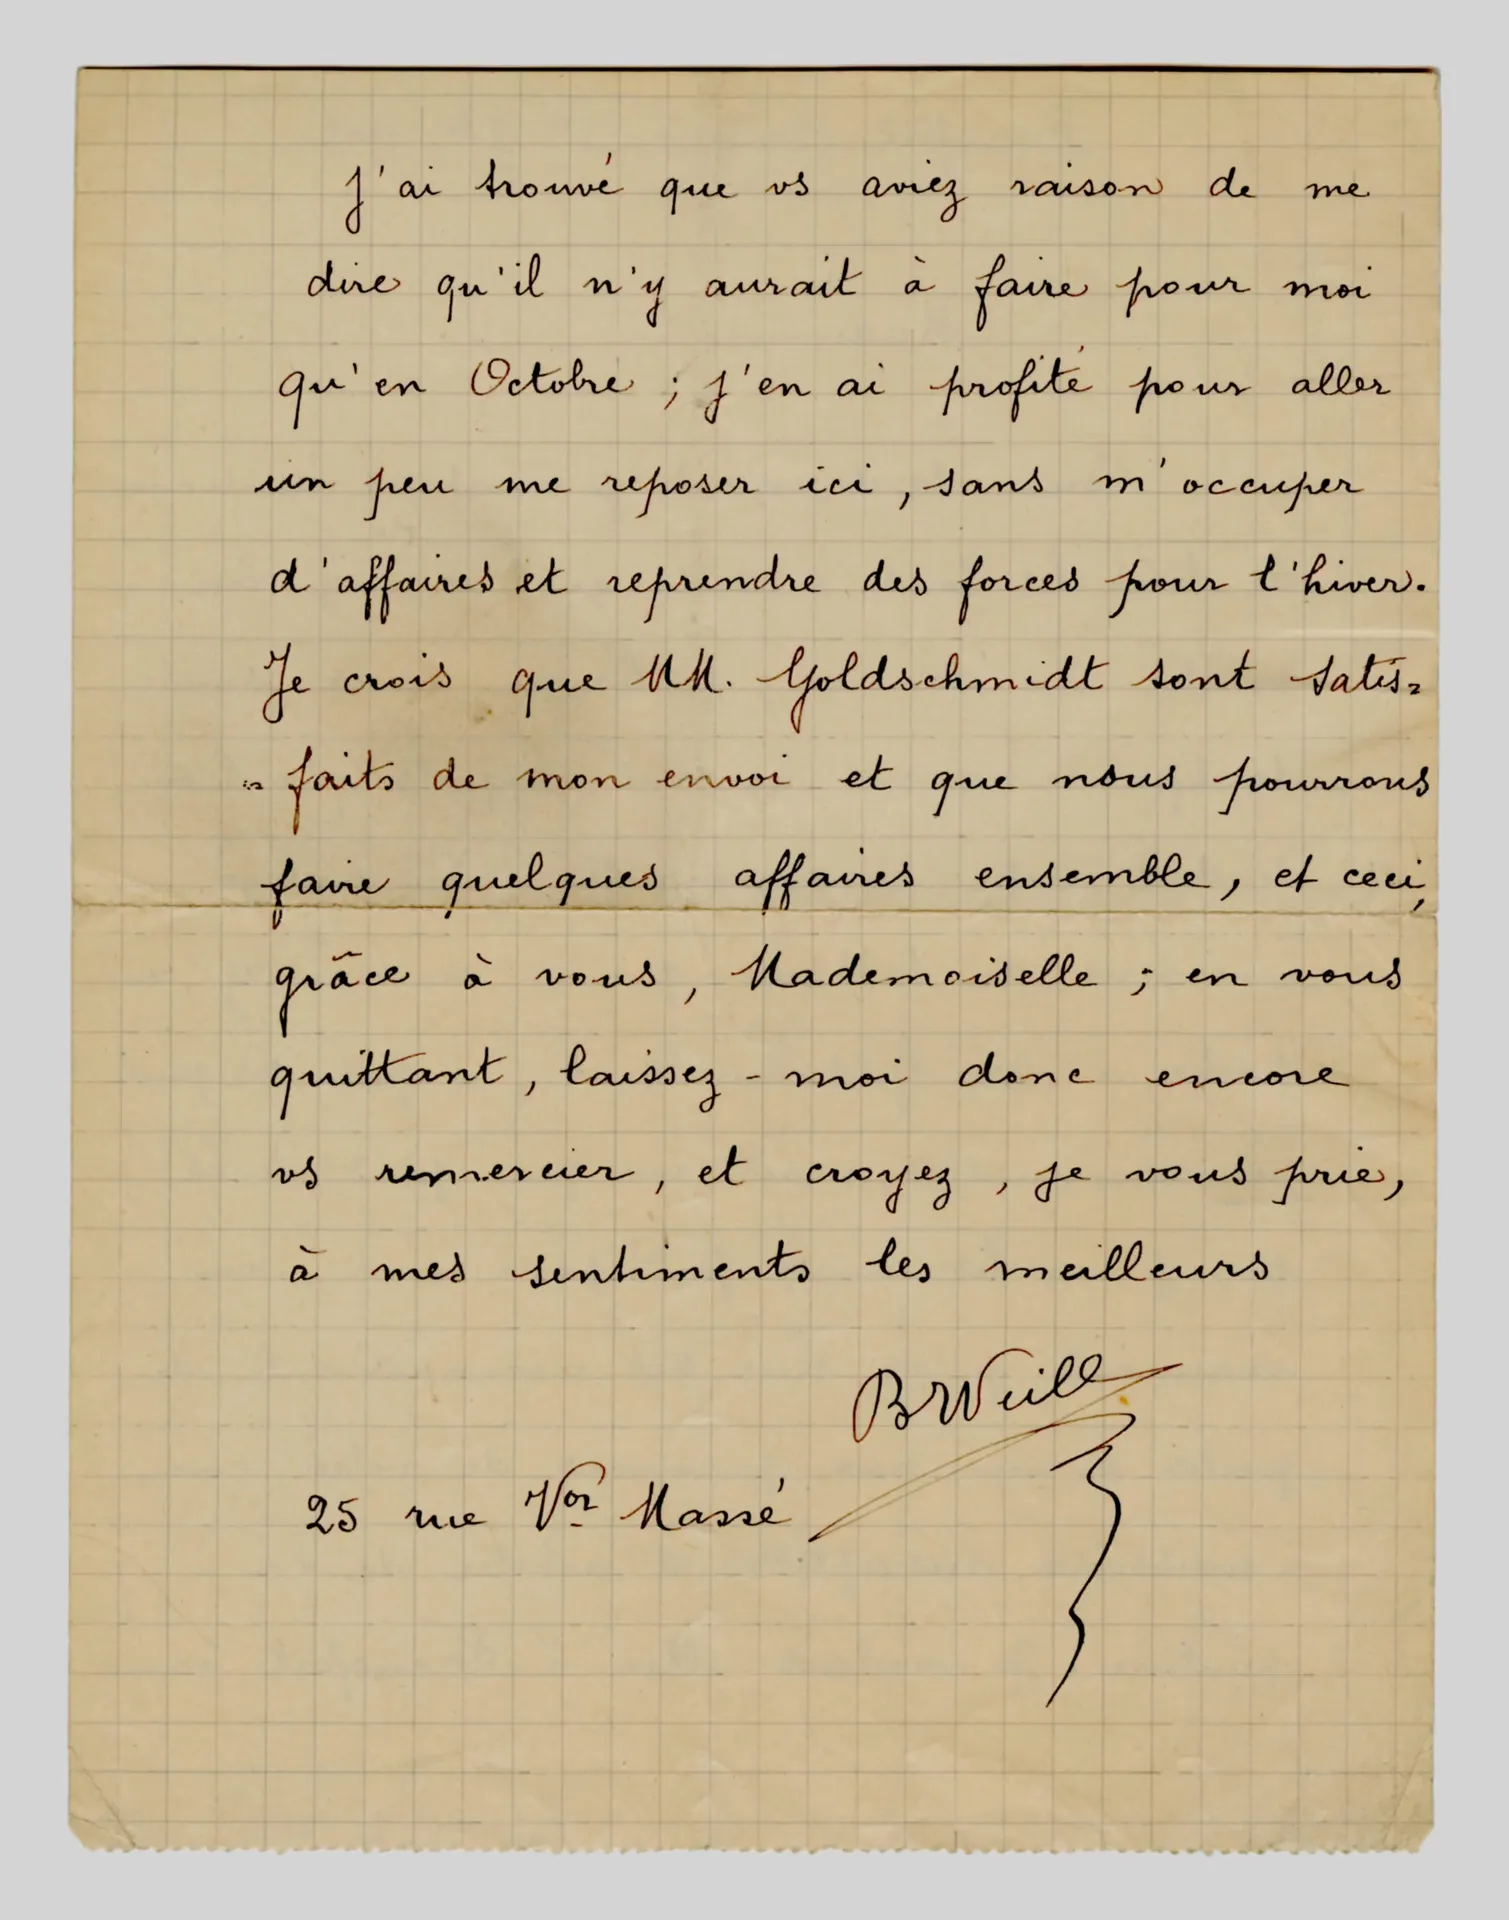 J'ai trouvé que vs aviez raison de me
dire qu'il n'y aurait à faire pour moi
qu'en Octobre ; j'en ai profité pour aller
un peu me reposer ici, sans m'occuper
d'affaires et reprendre des forces pour l'hiver.
Je crois que MM. Goldschmidt sont satis=
=faits de mon envoi et que nous pourrons
faire quelques affaires ensemble, et ceci,
grâce à vous, Mademoiselle ; en vous
quittant, laissez-moi donc encore
vs remercier, et croyez, je vous prie,
à mes sentiments les meilleurs
BWeill
25 rue Vor Massé